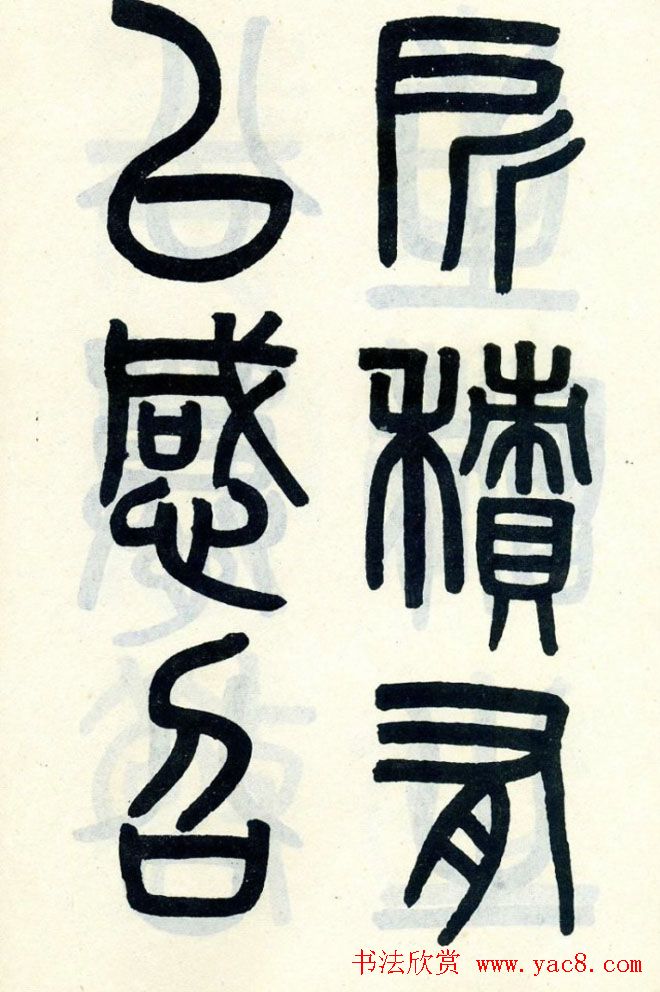 所積有
以感召
书法欣赏 www.yac8.com